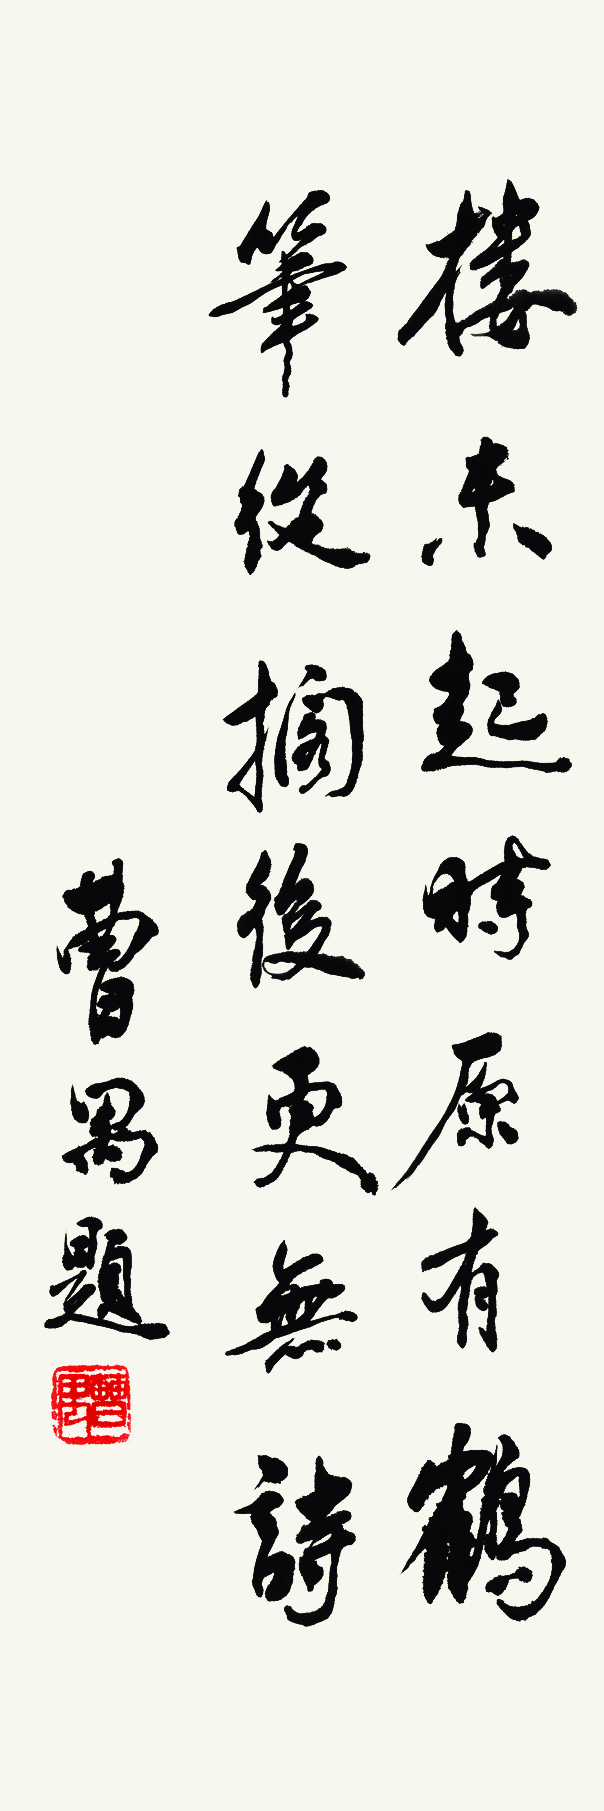 楼未起時原有鶴
筆從擱後更無詩
曹禺題